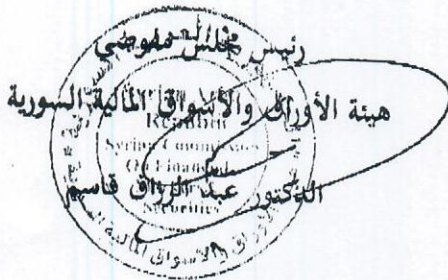 رئيس مجلس مفوضي
هيئة الأوراق والأسواق المالية السورية
الدكتور عبد الرزاق قاسم
Syrian Commission
On Financial
Securities